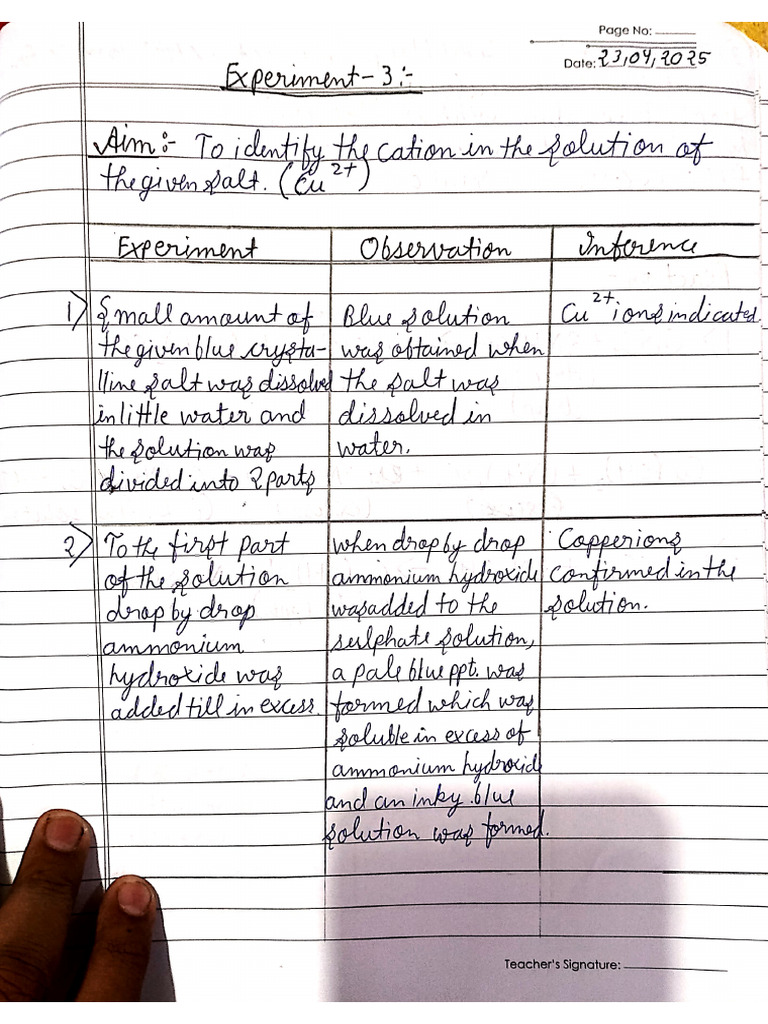 Page No:
Date: 23,04,2025
Experiment-3:-
Aim:- To identify the cation in the solution of
the given salt. (Cu2+)
Experiment
Observation
Inference
1) Small amount of
the given blue crysta-
lline salt was dissolved
in little water and
the solution was
divided into 2 parts
Blue solution
was obtained when
the salt was
dissolved in
water.
Cu2+ ions indicated.
2) To the first part
of the solution
drop by drop
ammonium
hydroxide was
added till in excess.
when drop by drop
ammonium hydroxide
was added to the
sulphate solution,
a pale blue ppt. was
formed which was
soluble in excess of
ammonium hydroxid
and an inky blue
solution was formed.
Copper ions
confirmed in the
solution.
Teacher's Signature: